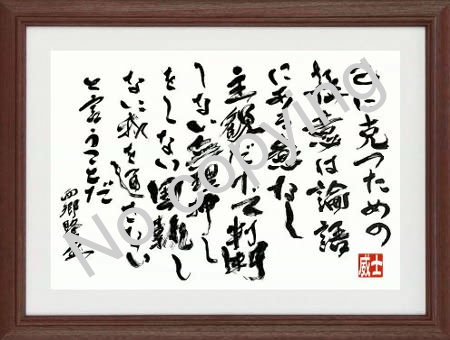 己に克つための
極意は論語
にある意なし
主観だけで判断
しない無理押し
をしない固執し
ない我を通さない
と言うことだ
西郷隆盛
No copying